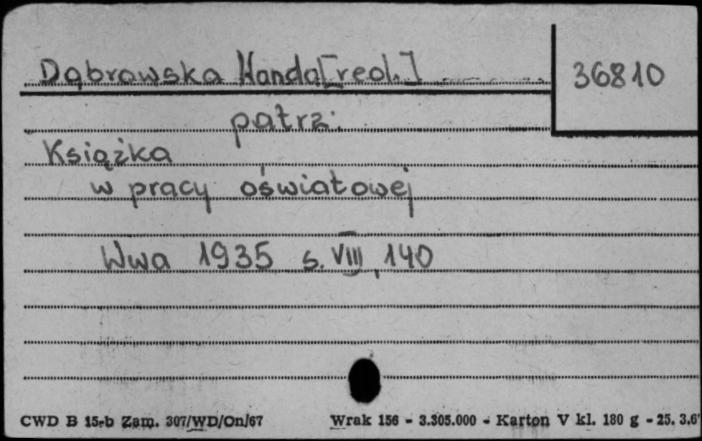 Dąbrowska Wanda [red.]
36810
patrz:
Książka
w pracy oświatowej
Wwa 1935 s. VIII, 140
CWD B 15-b Zam. 307/WD/On/67 Wrak 156 - 3.305.000 - Karton V kl. 180 g - 25. 3.6